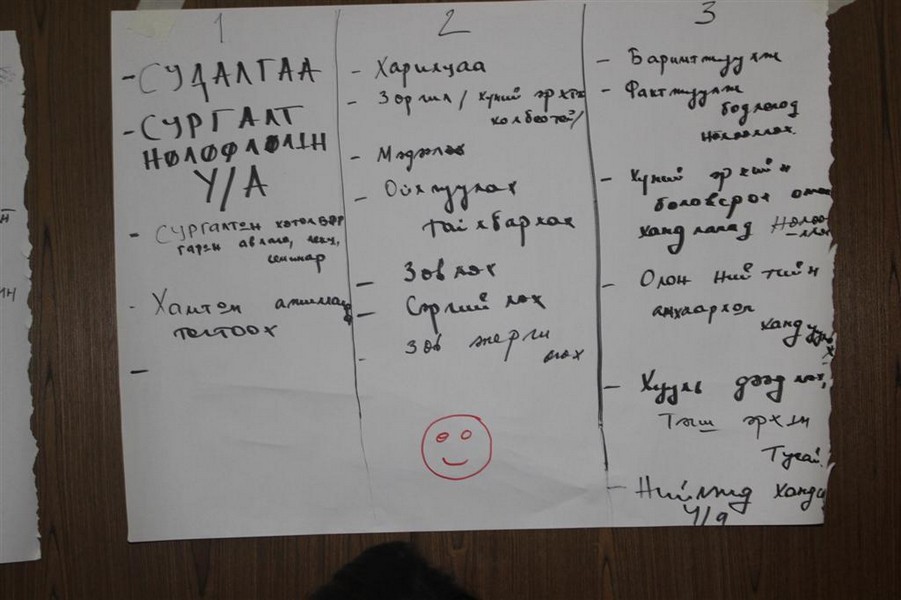 1
- СУДАЛГАА
- СУРГАЛТ
НӨЛӨӨЛӨЛИЙН
У/А
- Сургалтын хөтөлбөр
гарын авлага, лекц,
семинар
- Хамтын ажиллагаа
тогтоох
-
2
- Харилцаа
- Зорилго / хүний эрхтэй
холбоотой/
- Мэдлэг
- Ойлгуулах
тайлбарлах
- Зөвлөх
- Сэргийлэх
- Зөв
3
- Баримтжуулж
- Фактжуулж
бодлогод
нөлөөлөх.
- Хүний эрхийн
боловсрол олгох
хандлагад Нөлөө-
-лөх
- Олон Нийтийн
анхаарал
хандуул
х
- Хууль дээдлэх,
Тэгш эрхийн
Тухай.
- Нийгэмд ханд
У/а